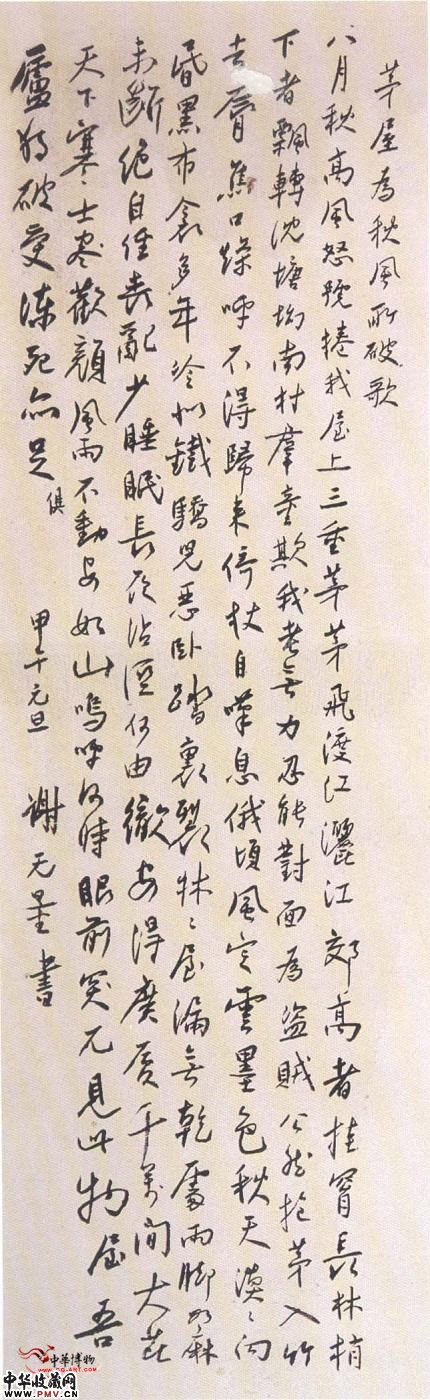 茅屋為秋風所破歌
八月秋高風怒號捲我屋上三重茅茅飛渡江灑江郊高者挂罥長林梢
下者飄轉沈塘坳南村羣童欺我老無力忍能對面為盜賊公然抱茅入竹
去脣焦口燥呼不得歸來倚杖自嘆息俄頃風定雲墨色秋天漠々向
昏黑布衾多年冷似鐵驕兒惡卧踏裏裂牀々屋漏無乾處雨脚如麻
未斷絕自經喪亂少睡眠長夜沾溼何由徹安得廣廈千萬間大庇
天下寒士盡歡顏風雨不動安如山嗚呼何時眼前突兀見此物屋吾
廬獨破受凍死亦足
俱
甲午元旦 謝无量書
中華博物
中华收藏网
www.PMV.CN